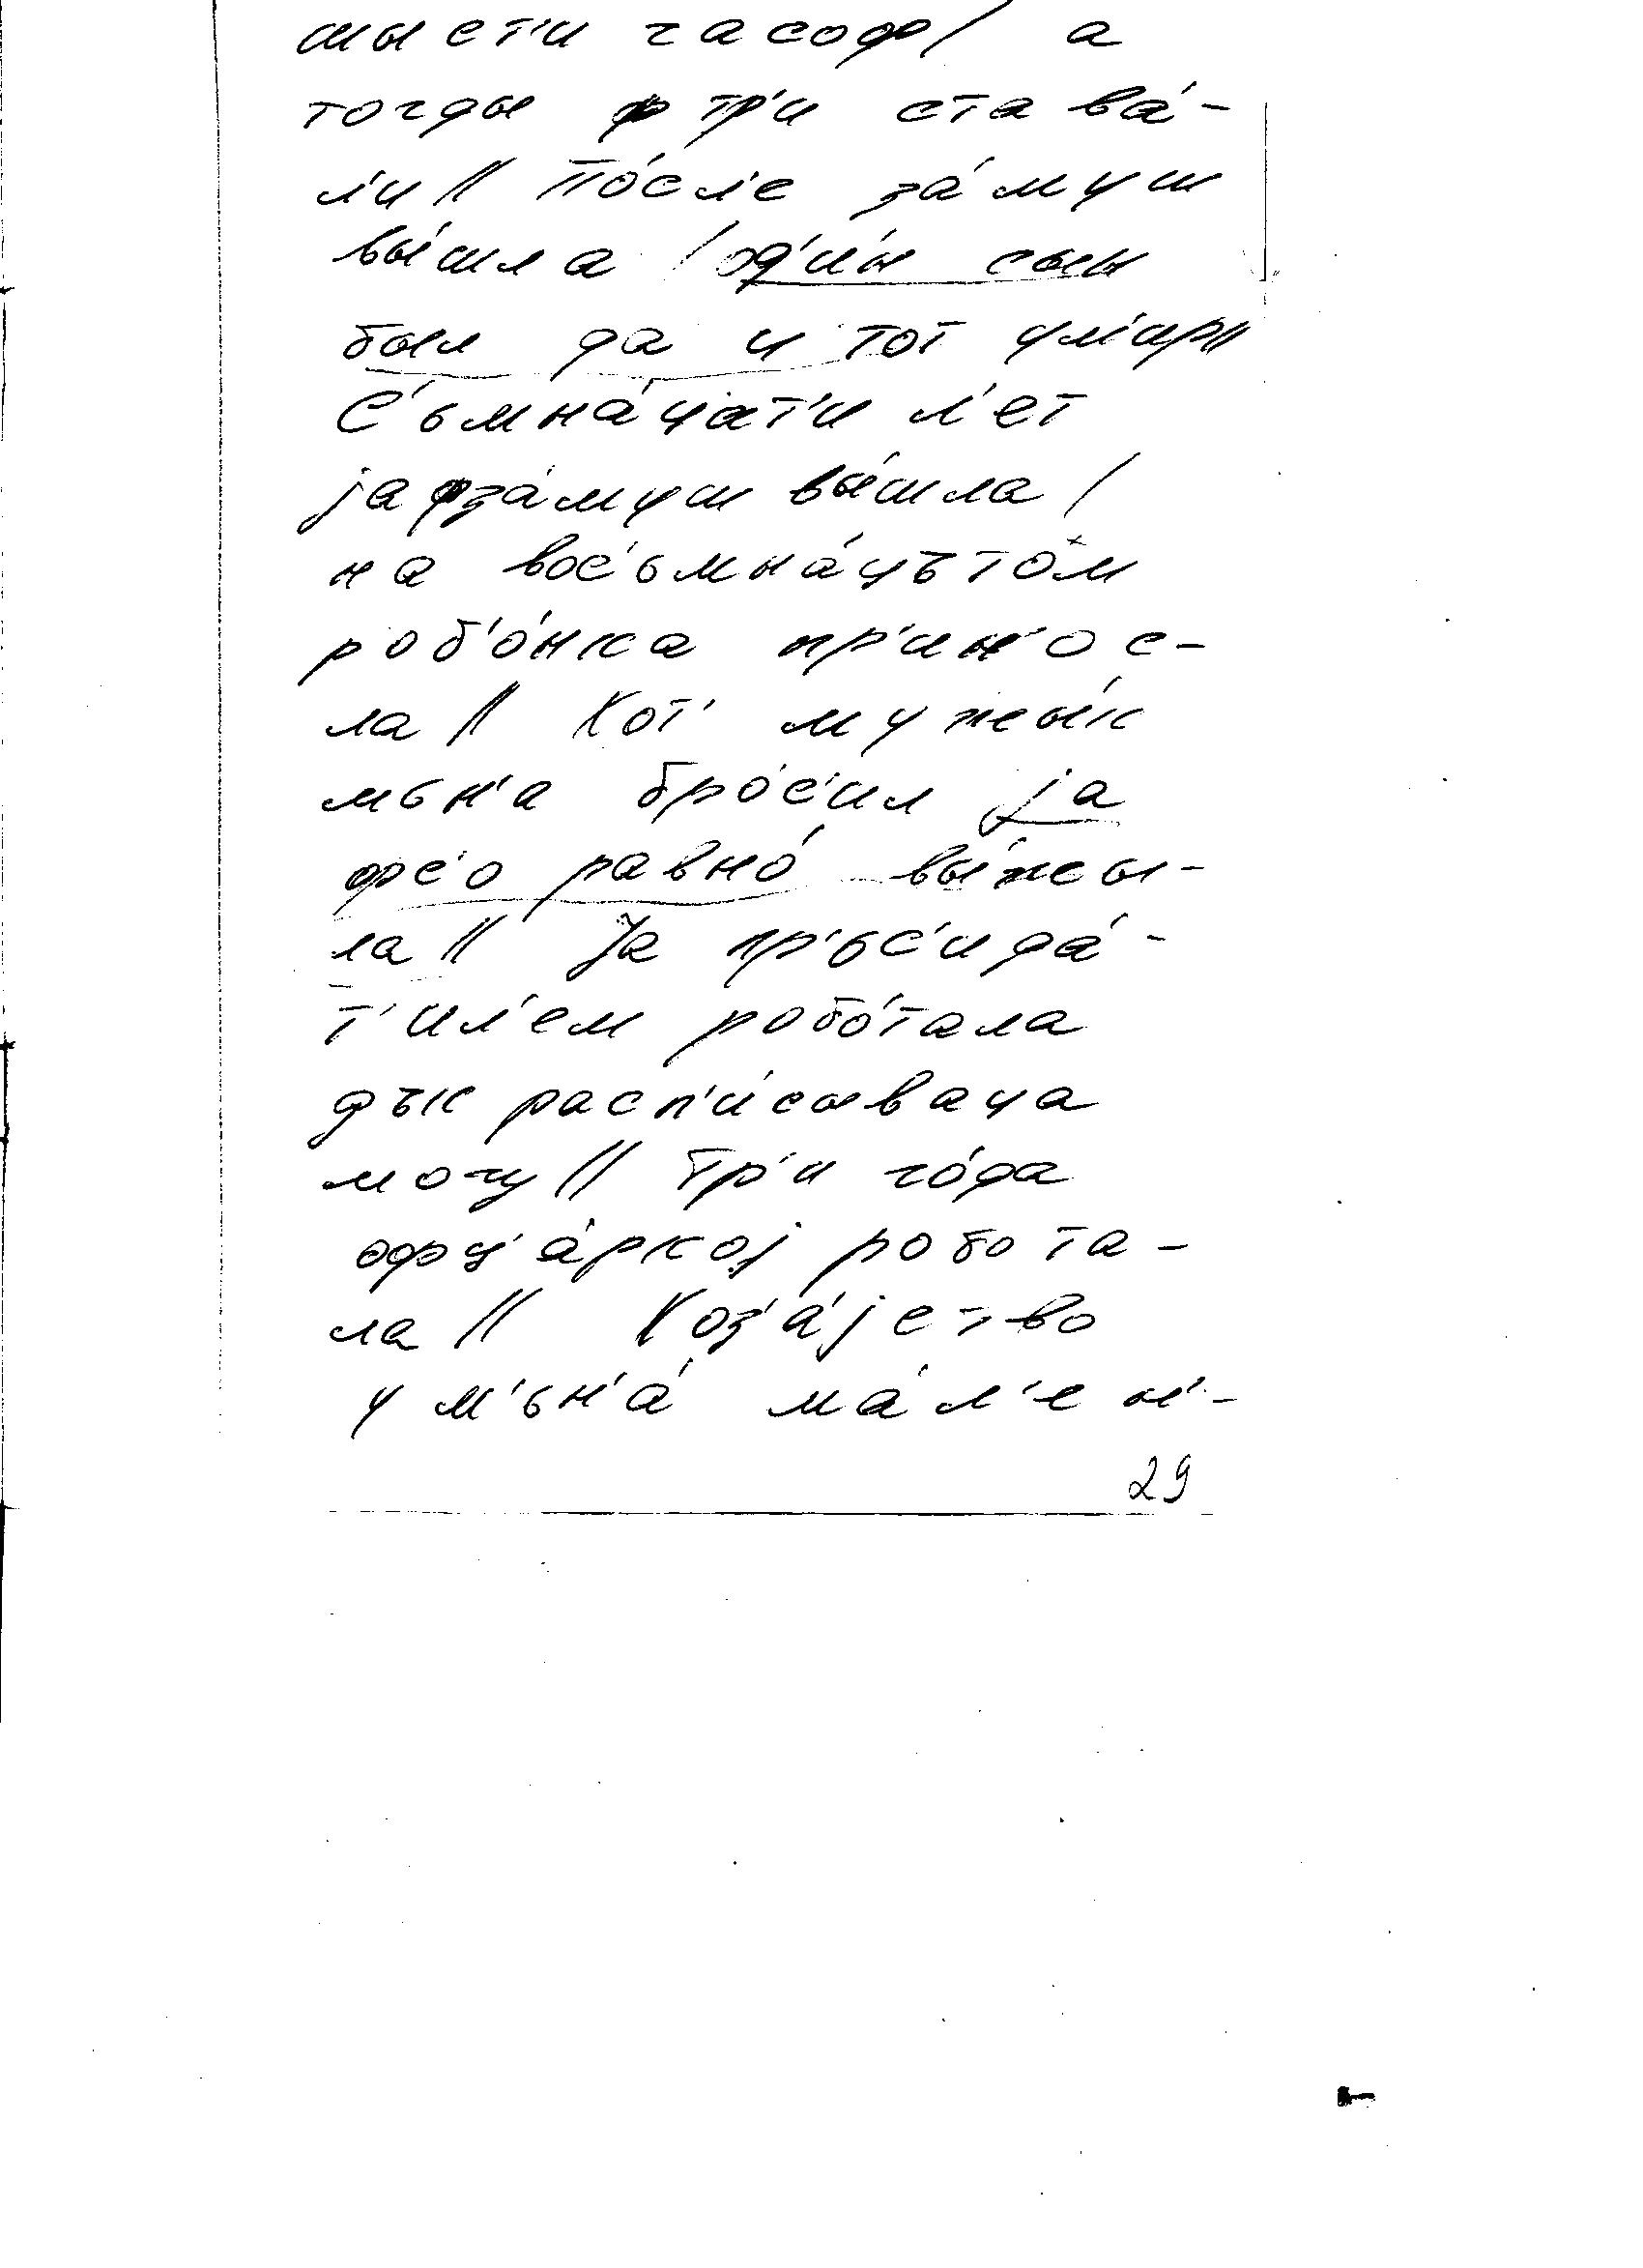 шысти часоф/ а
тогды ф тр'и става́-
л'и // По́сл'е за́муш
вы́шла / од'и́н сын
был да и тот ум'ир //
С'ьмна́цат'и л'ет
jа фза́муш вы́шла /
на вос'ьмна́цътом
роб'о́нка пр'ин'ос-
ла // Хот' мужы́к
мьн'а бро́с'ил jа
фс'о равно́ вы́жы-
ла // Jа пр'ьс'ида́-
т'ил'ем робо́тала
дък расп'и́сываца
могу // Тр'и го́да
офц'а́ркоj робота-
ла // Хоз'а́jство
у м'ьн'а́ ма́л'ен'-
29